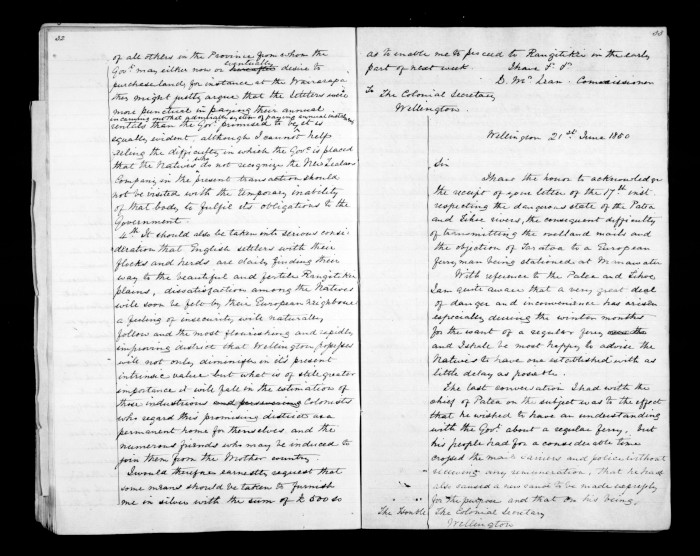 32
of all others in the Province from whom the
eventually
Govt. may either now or hereafter desire to
purchase land, for instance at the Wararapa
they might justly argue that the settlers were
more punctual in paying their annual
in carrying out that system of paying annual
rentals than the Govt. promised to be, it is
equally evident, although I cannot help
feeling the difficulty in which the Govt. is placed
who
that the Natives do not recognize the New Zealand
Company in the present transaction should
not be visited with the temporary inability
of that body to fulfil its obligations to the
Government.
4th. It should also be taken into serious consi-
deration that English settlers with their
flocks and herds are daily finding their
way to the beautiful and fertile Rangitikei
plains, dissatisfaction among the Natives
will soon be felt by their European neighbours
a feeling of insecurity will naturally
follow and the most flourishing and rapidly
improving district that Wellington possesses
will not only diminish in its present
intrinsic value but what is of still greater
importance it will fall in the estimation of
those industrious and persevering Colonists
who regard this promising district as a
permanent home for themselves and the
numerous friends who may be induced to
join them from the Mother country.
I would therefore earnestly request that
some means should be taken to furnish
me in silver with the sum of £500 so
33
as to enable me to proceed to Rangitikei in the early
part of next week. I have &c &c
D. McLean. Commissioner
To The Colonial Secretary
Wellington.
Wellington 21st June 1850
Sir
I have the honor to acknowledge
the receipt of your letter of the 17th inst.
respecting the dangerous state of the Patea
and rivers, the consequent difficulty
of transmitting the overland mails and
the objection of Taratoa to a European
ferryman being stationed at Manawatu
With reference to the Patea and
I am quite aware that a very great deal
of danger and inconvenience has arisen
especially during the winter months
for the want of a regular ferry
and I shall be most happy to advise the
Natives to have one established with as
little delay as possible.
The last conversation I had with the
chief of Patea on the subject was to the effect
that he wished to have an understanding
with the Govt. about a regular ferry, but
his people had for a considerable time
crossed the mail carriers and police without
receiving any remuneration, that he had
also caused a new canoe to be made expressly
for the purpose and that on his being
The Honble. The Colonial Secretary
Wellington